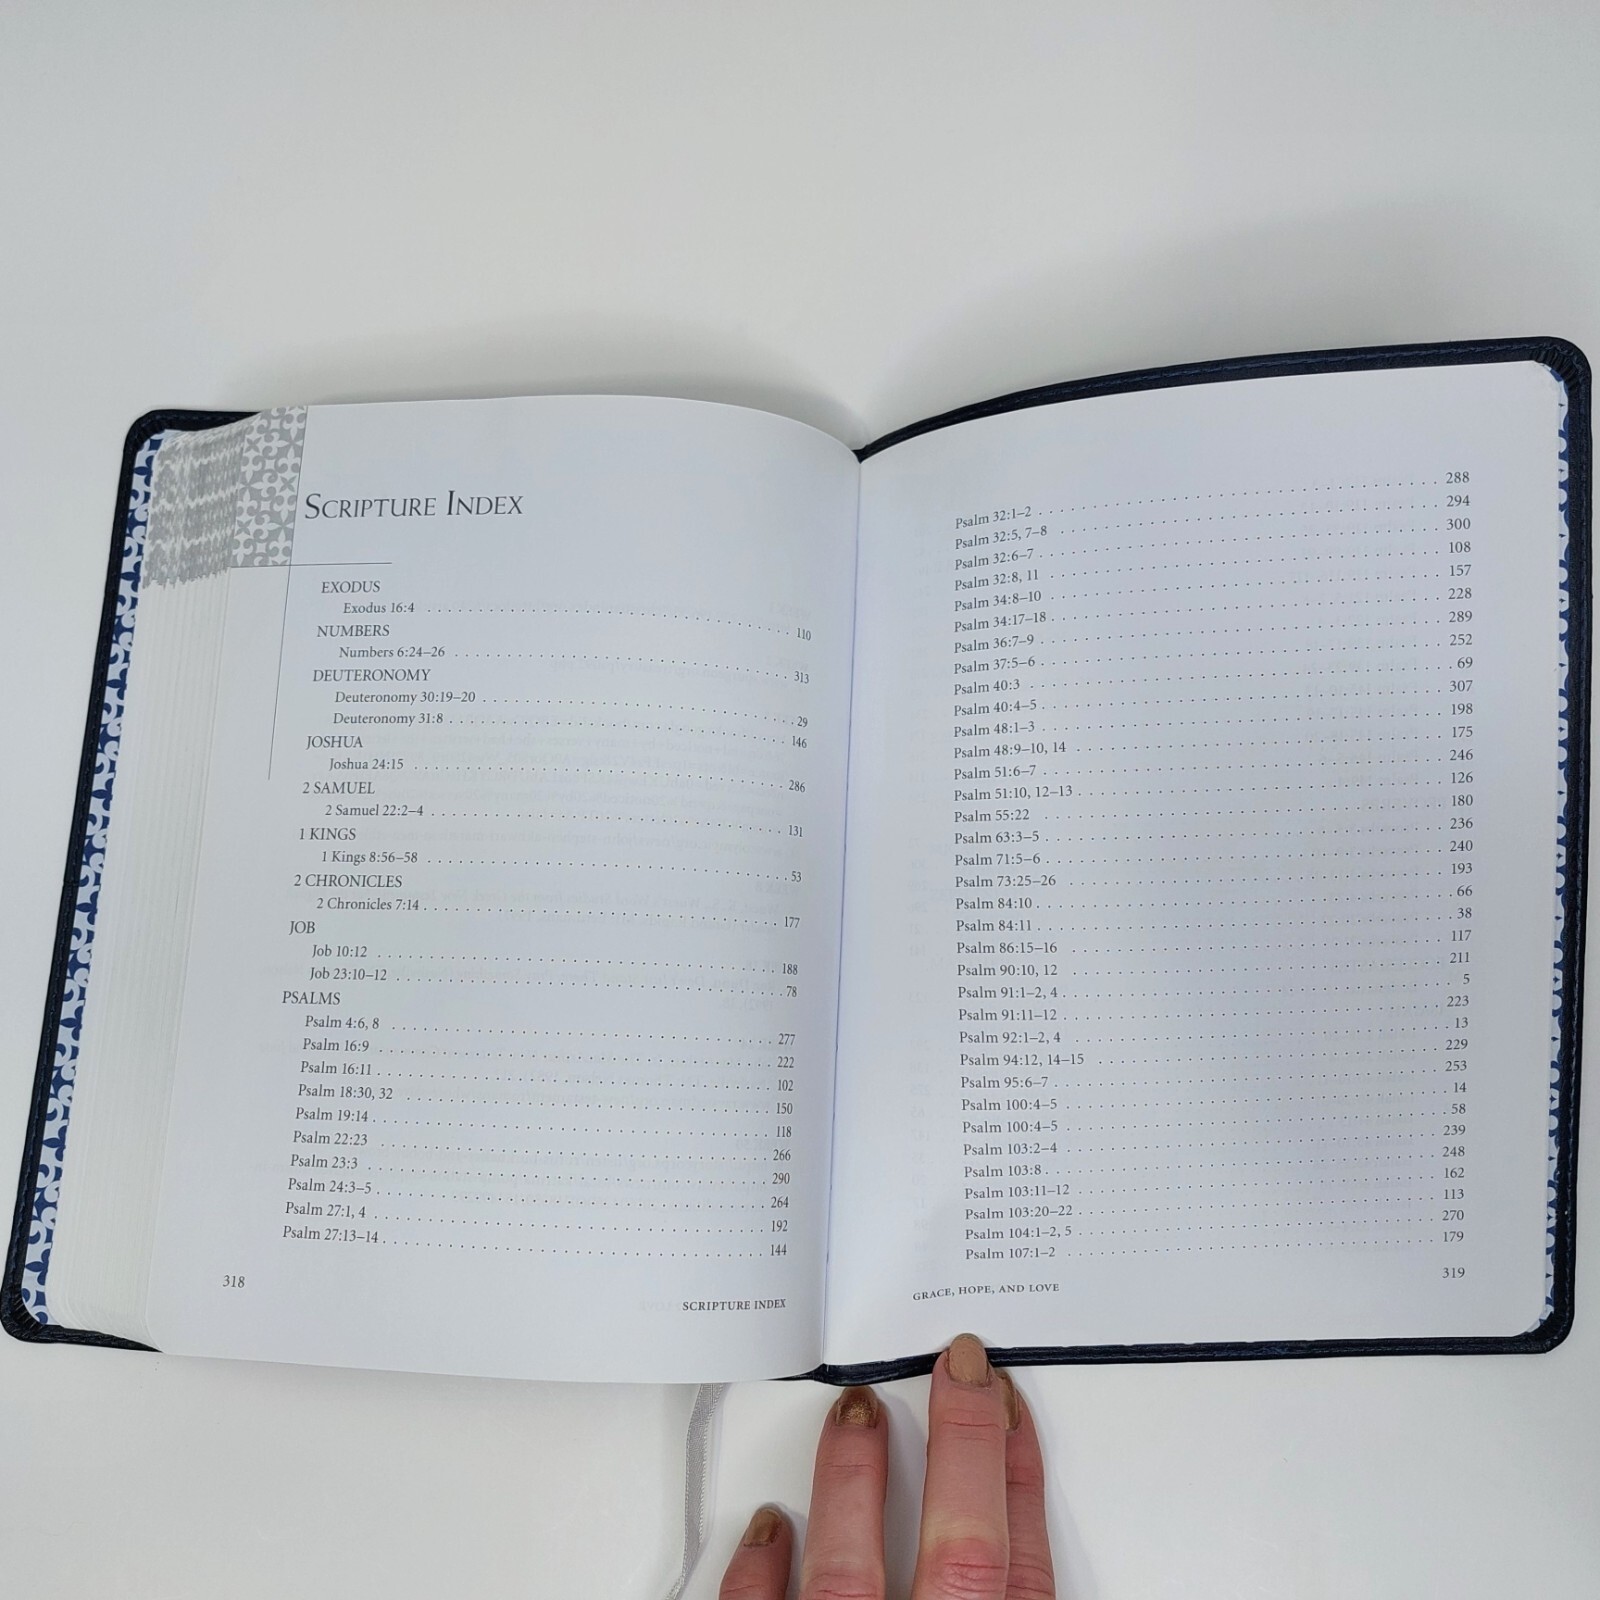 SCRIPTURE INDEX
EXODUS
Exodus 16:4 . . . . . 110
NUMBERS
Numbers 6:24–26 . . . . . 313
DEUTERONOMY
Deuteronomy 30:19–20 . . . . . 29
Deuteronomy 31:8 . . . . . 146
JOSHUA
Joshua 24:15 . . . . . 286
2 SAMUEL
2 Samuel 22:2–4 . . . . . 131
1 KINGS
1 Kings 8:56–58 . . . . . 53
2 CHRONICLES
2 Chronicles 7:14 . . . . . 177
JOB
Job 10:12 . . . . . 188
Job 23:10–12 . . . . . 78
PSALMS
Psalm 4:6, 8 . . . . . 277
Psalm 16:9 . . . . . 222
Psalm 16:11 . . . . . 102
Psalm 18:30, 32 . . . . . 150
Psalm 19:14 . . . . . 118
Psalm 22:23 . . . . . 266
Psalm 23:3 . . . . . 290
Psalm 24:3–5 . . . . . 264
Psalm 27:1, 4 . . . . . 192
Psalm 27:13–14 . . . . . 144
318
SCRIPTURE INDEX
Psalm 32:1–2 . . . . . 288
Psalm 32:5, 7–8 . . . . . 294
Psalm 32:6–7 . . . . . 300
Psalm 32:8, 11 . . . . . 108
Psalm 34:8–10 . . . . . 157
Psalm 34:17–18 . . . . . 228
Psalm 36:7–9 . . . . . 289
Psalm 37:5–6 . . . . . 252
Psalm 40:3 . . . . . 69
Psalm 40:4–5 . . . . . 307
Psalm 48:1–3 . . . . . 198
Psalm 48:9–10, 14 . . . . . 175
Psalm 51:6–7 . . . . . 246
Psalm 51:10, 12–13 . . . . . 126
Psalm 55:22 . . . . . 180
Psalm 63:3–5 . . . . . 236
Psalm 71:5–6 . . . . . 240
Psalm 73:25–26 . . . . . 193
Psalm 84:10 . . . . . 66
Psalm 84:11 . . . . . 38
Psalm 86:15–16 . . . . . 117
Psalm 90:10, 12 . . . . . 211
Psalm 91:1–2, 4 . . . . . 5
Psalm 91:11–12 . . . . . 223
Psalm 92:1–2, 4 . . . . . 13
Psalm 94:12, 14–15 . . . . . 229
Psalm 95:6–7 . . . . . 253
Psalm 100:4–5 . . . . . 14
Psalm 100:4–5 . . . . . 58
Psalm 103:2–4 . . . . . 239
Psalm 103:8 . . . . . 248
Psalm 103:11–12 . . . . . 162
Psalm 103:20–22 . . . . . 113
Psalm 104:1–2, 5 . . . . . 270
Psalm 107:1–2 . . . . . 179
GRACE, HOPE, AND LOVE
319